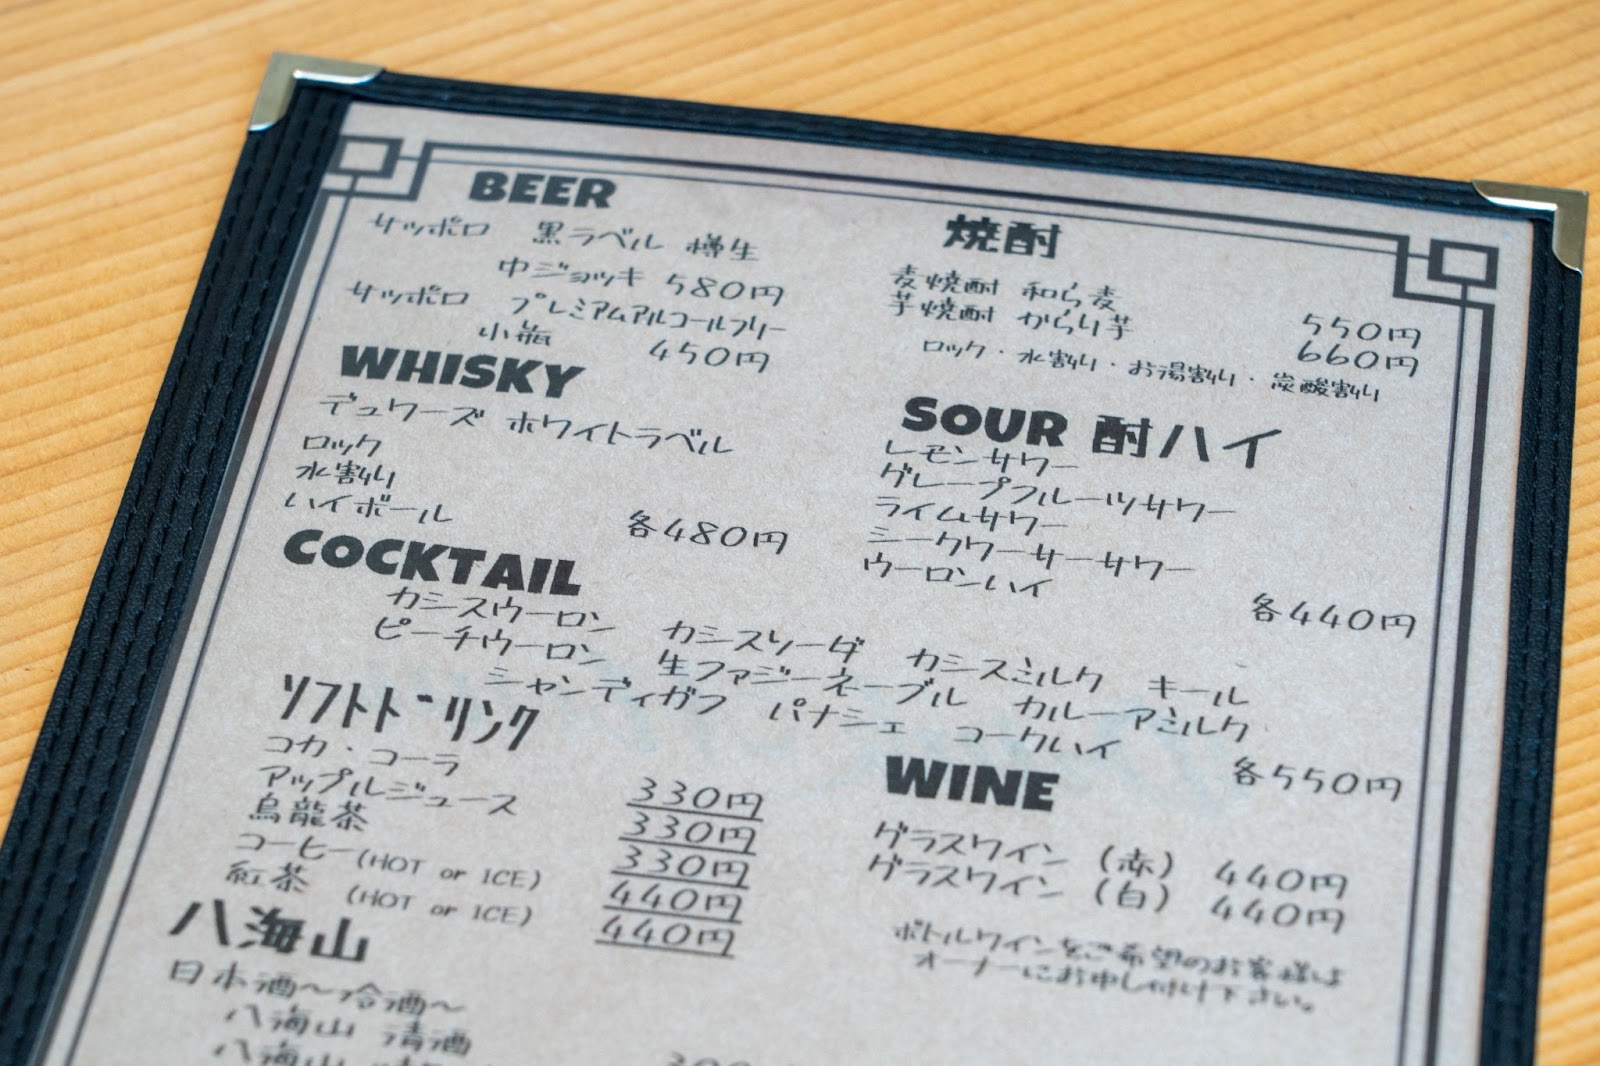 BEER
サッポロ 黒ラベル 樽生
中ジョッキ 580円
サッポロ プレミアムアルコールフリー
小瓶 450円
WHISKY
デュワーズ ホワイトラベル
ロック
水割り
ハイボール
各480円
焼酎
麦焼酎 和ら麦 550円
芋焼酎 からり芋 660円
ロック・水割り・お湯割り・炭酸割り
SOUR 酎ハイ
レモンサワー
グレープフルーツサワー
ライムサワー
シークワーサーサワー
ウーロンハイ
各440円
COCKTAIL
カシスウーロン カシスソーダ カシスミルク キール
ピーチウーロン 生ファジーネーブル カルーアミルク
シャンディガフ パナシェ コークハイ
各550円
ソフトドリンク
コカ・コーラ 330円
アップルジュース 330円
烏龍茶 330円
コーヒー(HOT or ICE) 440円
紅茶 (HOT or ICE) 440円
WINE
グラスワイン (赤) 440円
グラスワイン (白) 440円
ボトルワインをご希望のお客様は
オーナーにお申し付け下さい。
八海山
日本酒〜冷酒〜
八海山 清酒
八海山